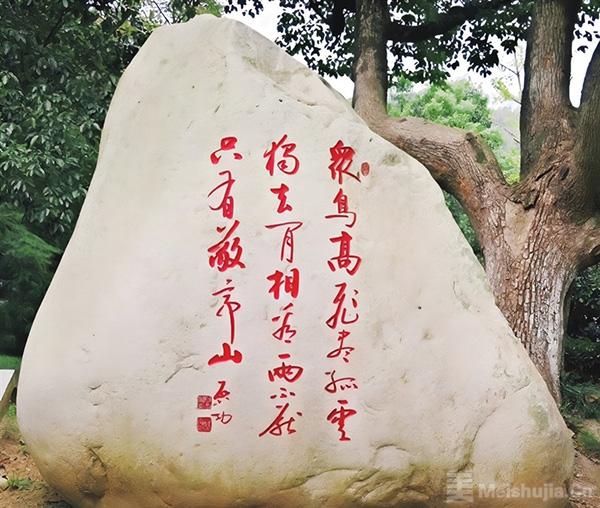 衆鳥高飛盡孤雲
獨去閒相看兩不厭
只有敬亭山
启功
Meishujia.Cn